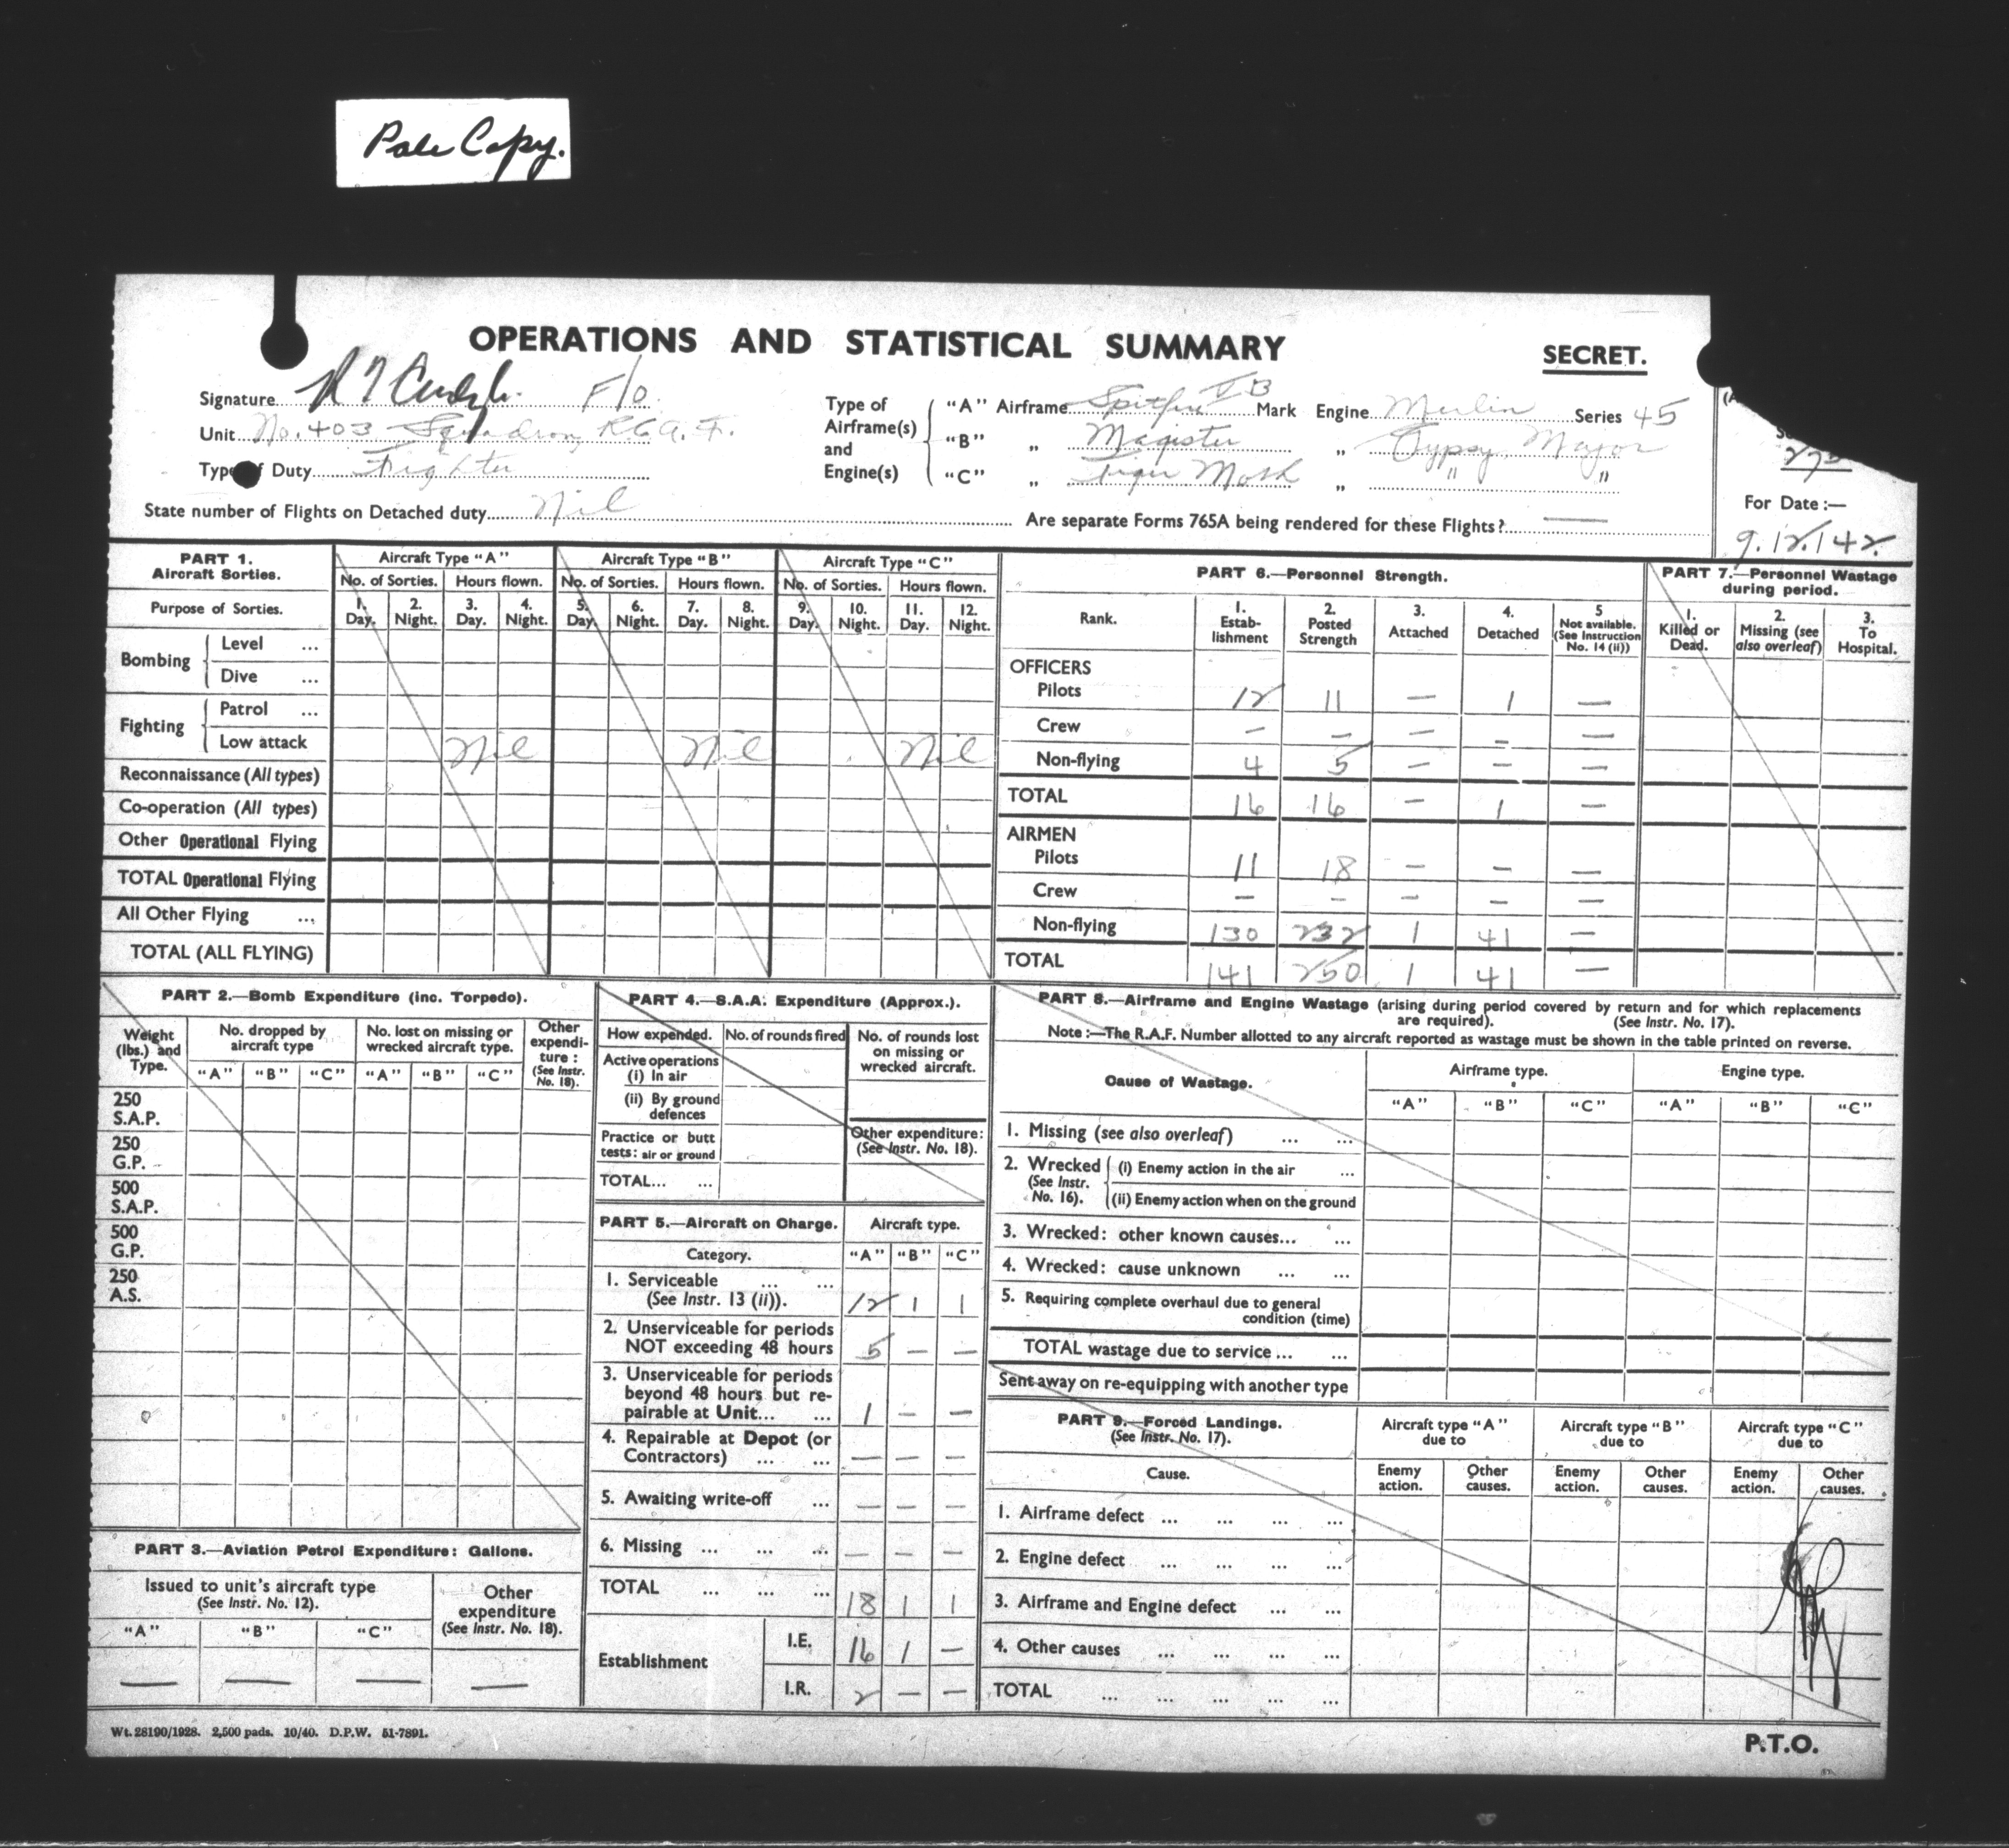 Pale Copy.
OPERATIONS AND STATISTICAL SUMMARY
SECRET.
Signature F/O.
Unit No. 403 Squadron, R.C.A.F.
Type of Duty Fighter
State number of Flights on Detached duty Nil
Type of Airframe(s) and Engine(s)
"A" Airframe Spitfire VB Mark Engine Merlin Series 45
"B" „ Magister „ Gypsy Major
"C" „ Tiger Moth „ " "
Are separate Forms 765A being rendered for these Flights? —
For Date:—
9.12.42.
PART 1.
Aircraft Sorties.
Aircraft Type "A" Aircraft Type "B" Aircraft Type "C"
No. of Sorties. Hours flown. No. of Sorties. Hours flown. No. of Sorties. Hours flown.
Purpose of Sorties.
1. Day. 2. Night. 3. Day. 4. Night. 5. Day. 6. Night. 7. Day. 8. Night. 9. Day. 10. Night. 11. Day. 12. Night.
Bombing
Level ...
Dive ...
Fighting
Patrol ...
Low attack Nil Nil Nil
Reconnaissance (All types)
Co-operation (All types)
Other Operational Flying
TOTAL Operational Flying
All Other Flying ...
TOTAL (ALL FLYING)
PART 6.—Personnel Strength.
Rank. 1. Estab-lishment 2. Posted Strength 3. Attached 4. Detached 5 Not available. (See Instruction No. 14 (ii))
OFFICERS
Pilots 12 11 — 1 —
Crew — — — — —
Non-flying 4 5 — — —
TOTAL 16 16 — 1 —
AIRMEN
Pilots 11 18 — — —
Crew — — — — —
Non-flying 130 232 1 41 —
TOTAL 141 250 1 41 —
PART 7.—Personnel Wastage during period.
1. Killed or Dead. 2. Missing (see also overleaf) 3. To Hospital.
PART 2.—Bomb Expenditure (inc. Torpedo).
Weight (lbs.) and Type. No. dropped by aircraft type No. lost on missing or wrecked aircraft type. Other expendi-ture: (See Instr. No. 18).
"A" "B" "C" "A" "B" "C"
250 S.A.P.
250 G.P.
500 S.A.P.
500 G.P.
250 A.S.
PART 3.—Aviation Petrol Expenditure: Gallons.
Issued to unit's aircraft type (See Instr. No. 12).
Other expenditure (See Instr. No. 18).
"A" "B" "C"
— — — —
PART 4.—S.A.A. Expenditure (Approx.).
How expended. No. of rounds fired No. of rounds lost on missing or wrecked aircraft.
Active operations
(i) In air
(ii) By ground defences
Practice or butt tests: air or ground
Other expenditure: (See Instr. No. 18).
TOTAL... ...
PART 5.—Aircraft on Charge. Aircraft type.
Category. "A" "B" "C"
1. Serviceable ... ... (See Instr. 13 (ii)). 12 1 1
2. Unserviceable for periods NOT exceeding 48 hours 5 — —
3. Unserviceable for periods beyond 48 hours but re-pairable at Unit... ... 1 — —
4. Repairable at Depot (or Contractors) ... ... — — —
5. Awaiting write-off ... — — —
6. Missing ... ... ... — — —
TOTAL ... ... ... 18 1 1
Establishment
I.E. 16 1 —
I.R. 2 — —
PART 8.—Airframe and Engine Wastage (arising during period covered by return and for which replacements are required). (See Instr. No. 17).
Note:—The R.A.F. Number allotted to any aircraft reported as wastage must be shown in the table printed on reverse.
Cause of Wastage. Airframe type. Engine type.
"A" "B" "C" "A" "B" "C"
1. Missing (see also overleaf) ... ...
2. Wrecked (See Instr. No. 16).
(i) Enemy action in the air ...
(ii) Enemy action when on the ground
3. Wrecked: other known causes... ...
4. Wrecked: cause unknown ... ...
5. Requiring complete overhaul due to general condition (time)
TOTAL wastage due to service ... ...
Sent away on re-equipping with another type
PART 9.—Forced Landings.
(See Instr. No. 17).
Aircraft type "A" due to Aircraft type "B" due to Aircraft type "C" due to
Cause. Enemy action. Other causes. Enemy action. Other causes. Enemy action. Other causes.
1. Airframe defect ... ... ... ...
2. Engine defect ... ... ... ...
3. Airframe and Engine defect ... ...
4. Other causes ... ... ... ...
TOTAL ... ... ... ... ...
Wt. 28190/1928. 2,500 pads. 10/40. D.P.W. 51-7891.
P.T.O.